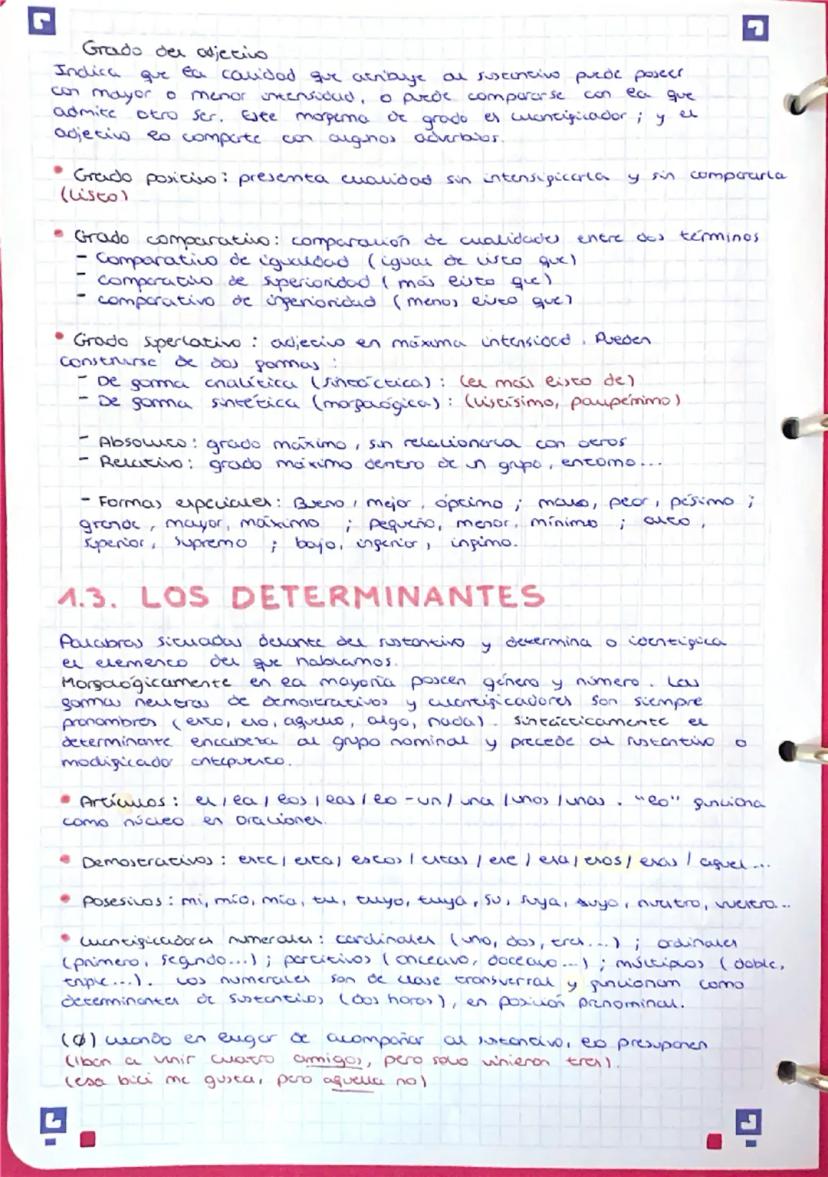 Grado del adjetivo
Indica que la calidad que atribuye al sustantivo puede poseer
con mayor o menor intensidad, o puede compararse con la que
admite otro ser. Este morfema de grado es cuantificador; y el
adjetivo lo comparte con algunos adverbios.
• Grado positivo: presenta cualidad sin intensificarla y sin compararla
(listo)
• Grado comparativo: comparación de cualidades entre dos términos
- Comparativo de igualdad (igual de listo que)
- comparativo de superioridad (más listo que)
- comparativo de inferioridad (menos listo que)
• Grado sperlativo: adjetivo en máxima intensidad. Pueden
construirse de dos formas:
- De forma analítica (sintáctica): (el más listo de)
- De forma sintética (morfológica): (listísimo, paupérrimo)
- Absoluto: grado máximo, sin relacionarla con otros
- Relativo: grado máximo dentro de un grupo, entorno...
- Formas especiales: Bueno, mejor, óptimo; malo, peor, pésimo;
grande, mayor, máximo ; pequeño, menor, mínimo ; alto,
superior, supremo ; bajo, inferior, ínfimo.
1.3. LOS DETERMINANTES
Palabras situadas delante del sustantivo y determina o identifica
el elemento del que hablamos.
Morfológicamente en la mayoría poseen género y número. Las
formas neutras de demostrativos y cuantificadores son siempre
pronombres (esto, eso, aquello, algo, nada). Sintácticamente el
determinante encabeza al grupo nominal y precede al sustantivo o
modificado antepuesto.
• Artículos: el/la/los/las/lo -un/una/unos/unas. "lo" funciona
como núcleo en oraciones.
• Demostrativos: este/esta/estos/estas/ese/esa/esos/esas/aquel...
• Posesivos: mi, mío, mía, tu, tuyo, tuya, su, suya, suyo, nuestro, vuestro...
• Cuantificadores numerales: cardinales (uno, dos, tres...); ordinales
(primero, segundo...); partitivos (onceavo, doceavo...); múltiplos (doble,
triple...). Los numerales son de clase transversal y funcionan como
determinantes de sustantivos (dos horas), en posición prenominal.
(Ø) cuando en lugar de acompañar al sustantivo, lo presuponen
(Iban a venir cuatro amigos, pero solo vinieron tres).
(esa bici me gusta, pero aquella no)